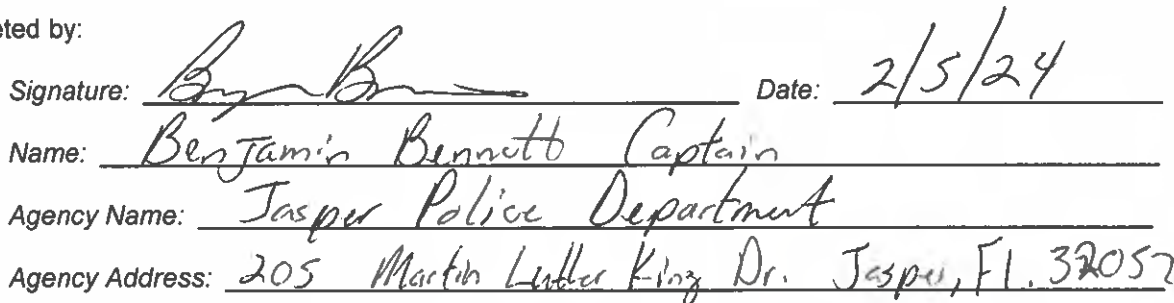 eted by:
Signature: Date: 2/5/24
Name: Benjamin Bennett Captain
Agency Name: Jasper Police Department
Agency Address: 205 Martin Luther King Dr. Jasper, Fl. 32052